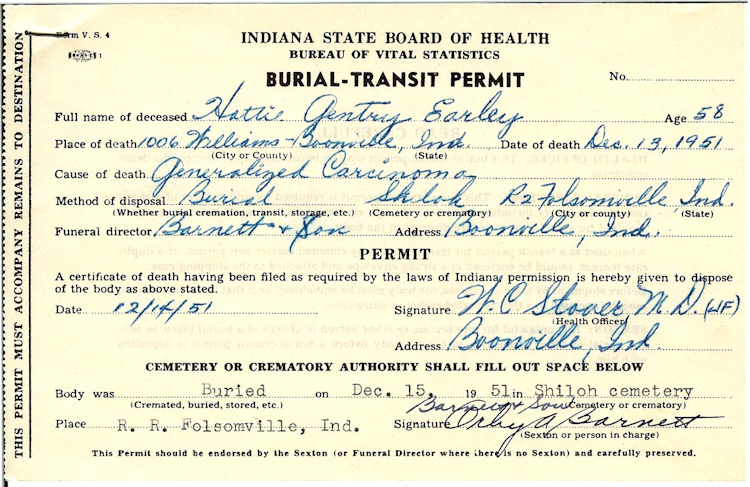 THIS PERMIT MUST ACCOMPANY REMAINS TO DESTINATION
Form V. S. 4
INDIANA STATE BOARD OF HEALTH
BUREAU OF VITAL STATISTICS
BURIAL-TRANSIT PERMIT
No.
Full name of deceased Hattie Gentry Earley Age 58
Place of death 1006 Williams - Boonville, Ind. Date of death Dec. 13, 1951
(City or County) (State)
Cause of death Generalized Carcinoma
Method of disposal Burial Shiloh R2 Folsomville, Ind.
(Whether burial cremation, transit, storage, etc.) (Cemetery or crematory) (City or county) (State)
Funeral director Barnett & Son Address Boonville, Ind.
PERMIT
A certificate of death having been filed as required by the laws of Indiana permission is hereby given to dispose
of the body as above stated.
Date 12/14/51 Signature W. C. Stover, M.D. (JF)
(Health Officer)
Address Boonville, Ind
CEMETERY OR CREMATORY AUTHORITY SHALL FILL OUT SPACE BELOW
Body was Buried on Dec. 15, 1951 in Shiloh cemetery
(Cremated, buried, stored, etc.) (Cemetery or crematory)
Barnett & Son
Place R. R. Folsomville, Ind. Signature Orby A Barnett
(Sexton or person in charge)
This Permit should be endorsed by the Sexton (or Funeral Director where there is no Sexton) and carefully preserved.